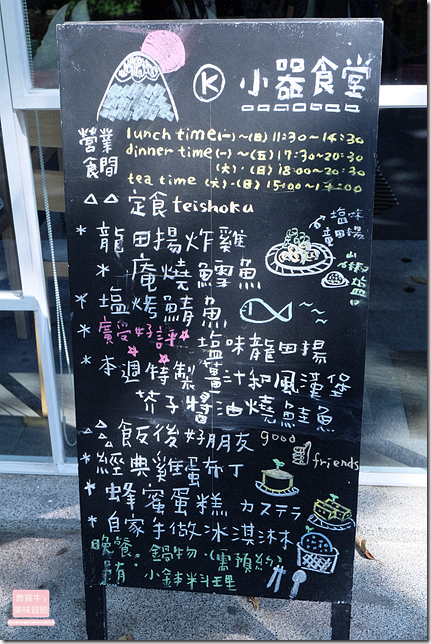 K 小器食堂
營業
食間
lunch time (一)~(日) 11:30~14:30
dinner time (一)~(五) 17:30~20:30
(六)·(日) 18:00~20:30
tea time (六)·(日) 15:00~
定食 teishoku
塩味
竜田揚
* 龍田揚炸雞
* 庵燒鱈魚
* 塩烤鯖魚
* 廣受好評 塩味龍田揚
* 本週特製 薑汁和風漢堡
芥子醬油燒鮭魚
飯後好朋友 good
friends
* 經典雞蛋布丁
* 蜂蜜蛋糕 カステラ
* 自家手做冰淇淋
晚餐。鍋物·(需預約)
有 小缽料理
費買牛's
美味冒險